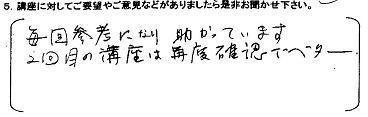 5. 講座に対してご要望やご意見などがありましたら是非お聞かせ下さい。
毎回参考になり 助かっています
2回目の講座は再度確認でベター